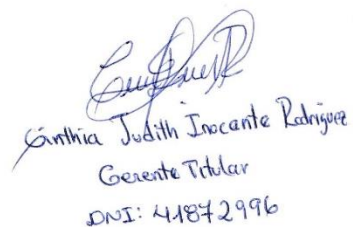 Cinthia Judith Inocente Rodriguez
Gerente Titular
DNI: 41872996